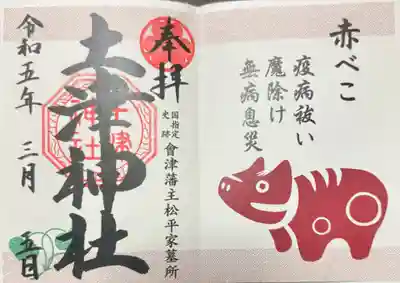 赤べこ
疫病祓い
魔除け
無病息災
奉拝
国指定
史跡
會津藩主松平家墓所
土津神社
令和五年 三月 五日